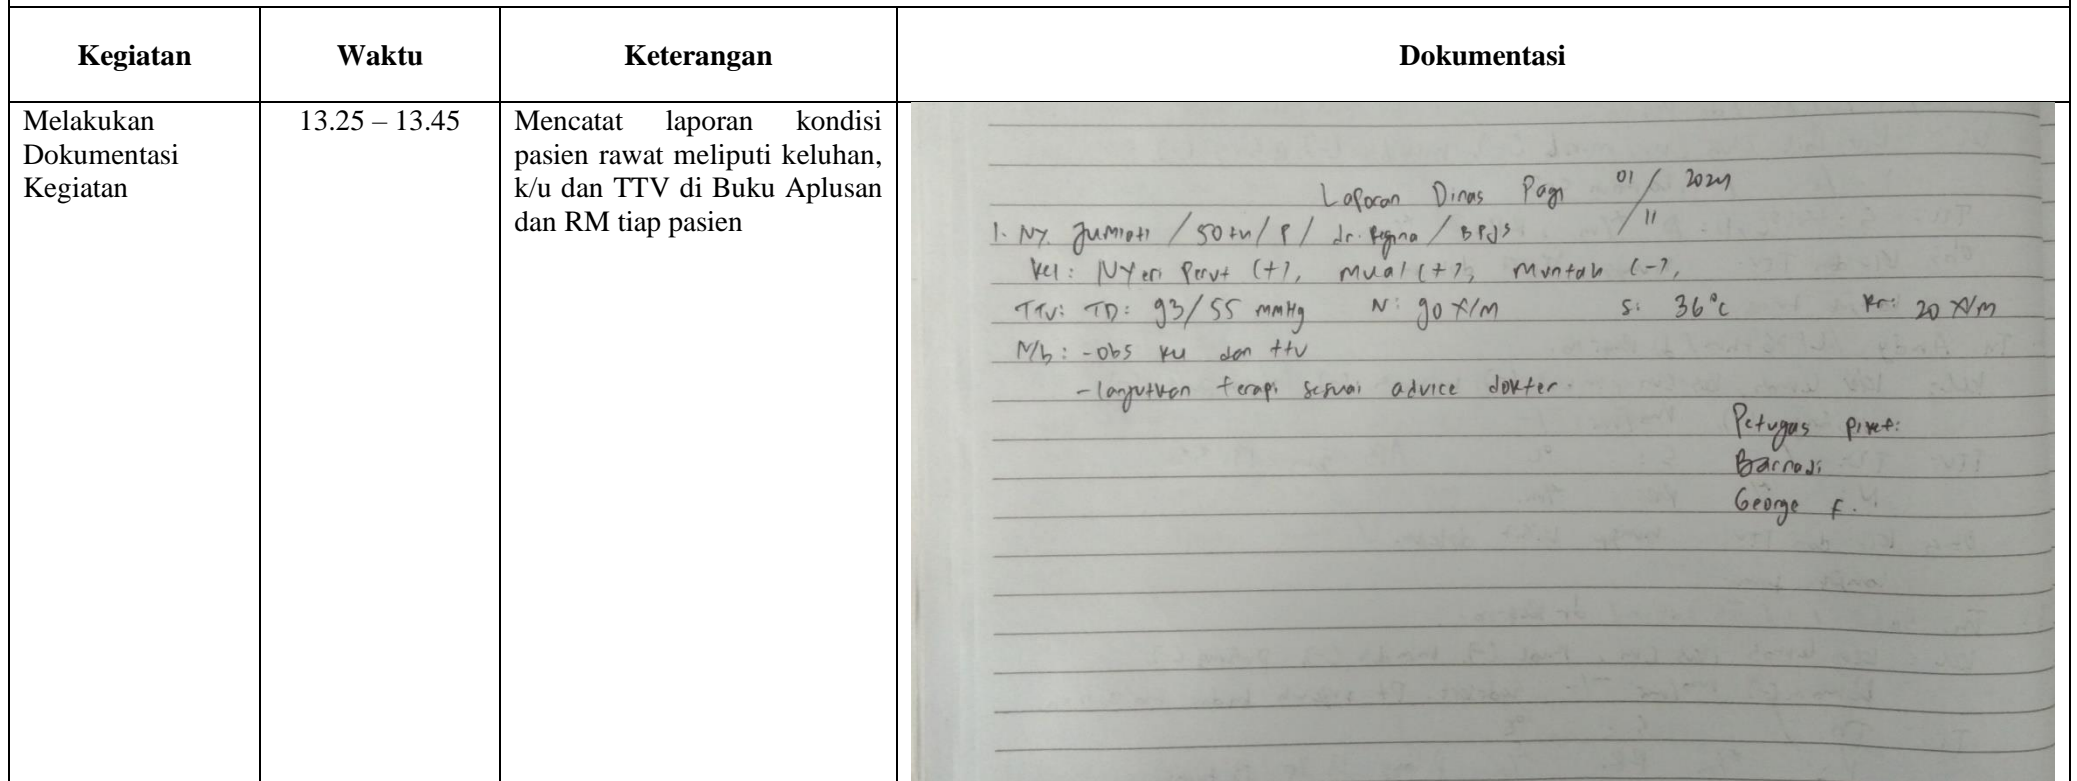 Kegiatan
Waktu
Keterangan
Dokumentasi
Melakukan
Dokumentasi
Kegiatan
13.25 – 13.45
Mencatat laporan kondisi
pasien rawat meliputi keluhan,
k/u dan TTV di Buku Aplusan
dan RM tiap pasien
Laporan Dinas Pagi 01/11 2024
1. NY. Jumiati / 50 tn / P / dr. Regina / BPJS
Kel: NYeri Perut (+), mual (+), muntah (-),
TTV: TD: 93/55 mmHg N: 90 x/m S: 36°c Rr: 20 x/m
M/b: -obs ku dan ttv
-lanjutkan terapi sesuai advice dokter
Petugas piket:
Barnadi
George F.